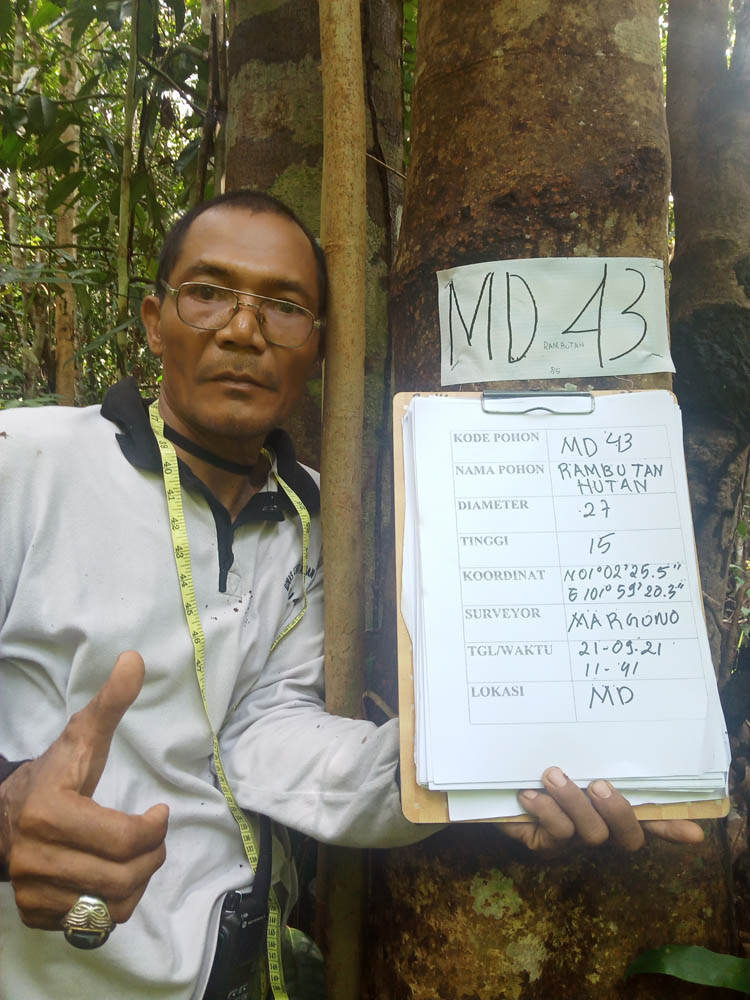 MD 43
RAMBUTAN
KODE POHON MD 43
NAMA POHON RAMBUTAN HUTAN
DIAMETER 27
TINGGI 15
KOORDINAT N 01° 02' 25.5"
E 101° 59' 20.3"
SURVEYOR MARGONO
TGL/WAKTU 21-09-21
11-41
LOKASI MD